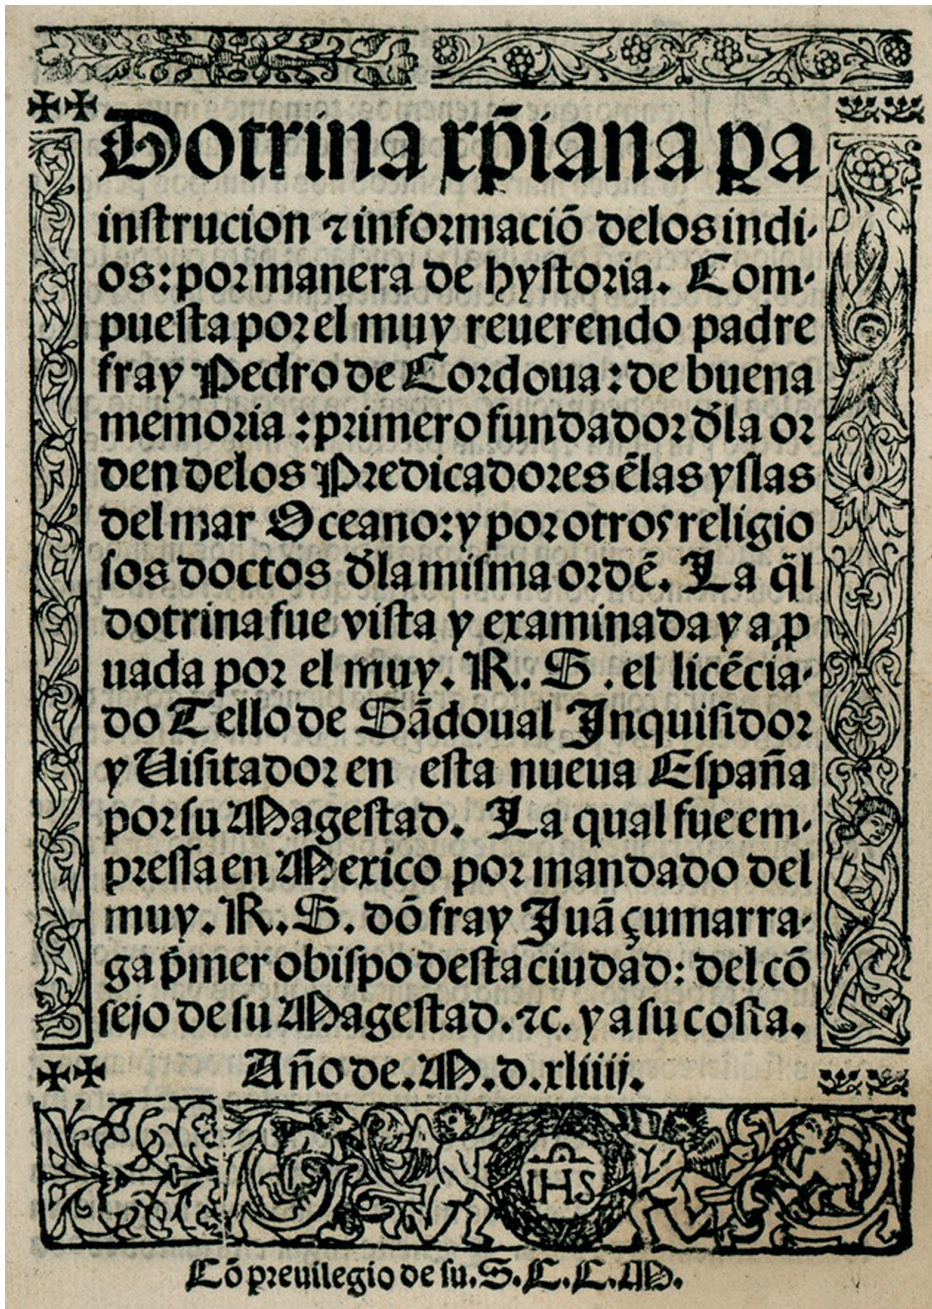 Dotrina xp̄iana ꝑa
instrucion ⁊ informaciō delos indi-
os: por manera de hystoria. Com-
puesta por el muy reuerendo padre
fray Pedro de Cordoua: de buena
memoria: primero fundador d̄la or
den delos Predicadores ēlas yslas
del mar Oceano: y por otros religio
sos doctos d̄la misma ordē. La q̄l
dotrina fue vista y examinada y aꝓ
uada por el muy. R. S. el licēcia-
do Tello de Sādoual Inquisidor
y Uisitador en esta nueua España
por su Magestad. La qual fue em-
pressa en Mexico por mandado del
muy. R. S. dō fray Juā çumarra-
ga p̄mer obispo desta ciudad: del cō
sejo de su Magestad. ⁊c. y a su costa.
Año de. M. d. xliiij.
IHS
Cō preuilegio de su. S. C. C. M.